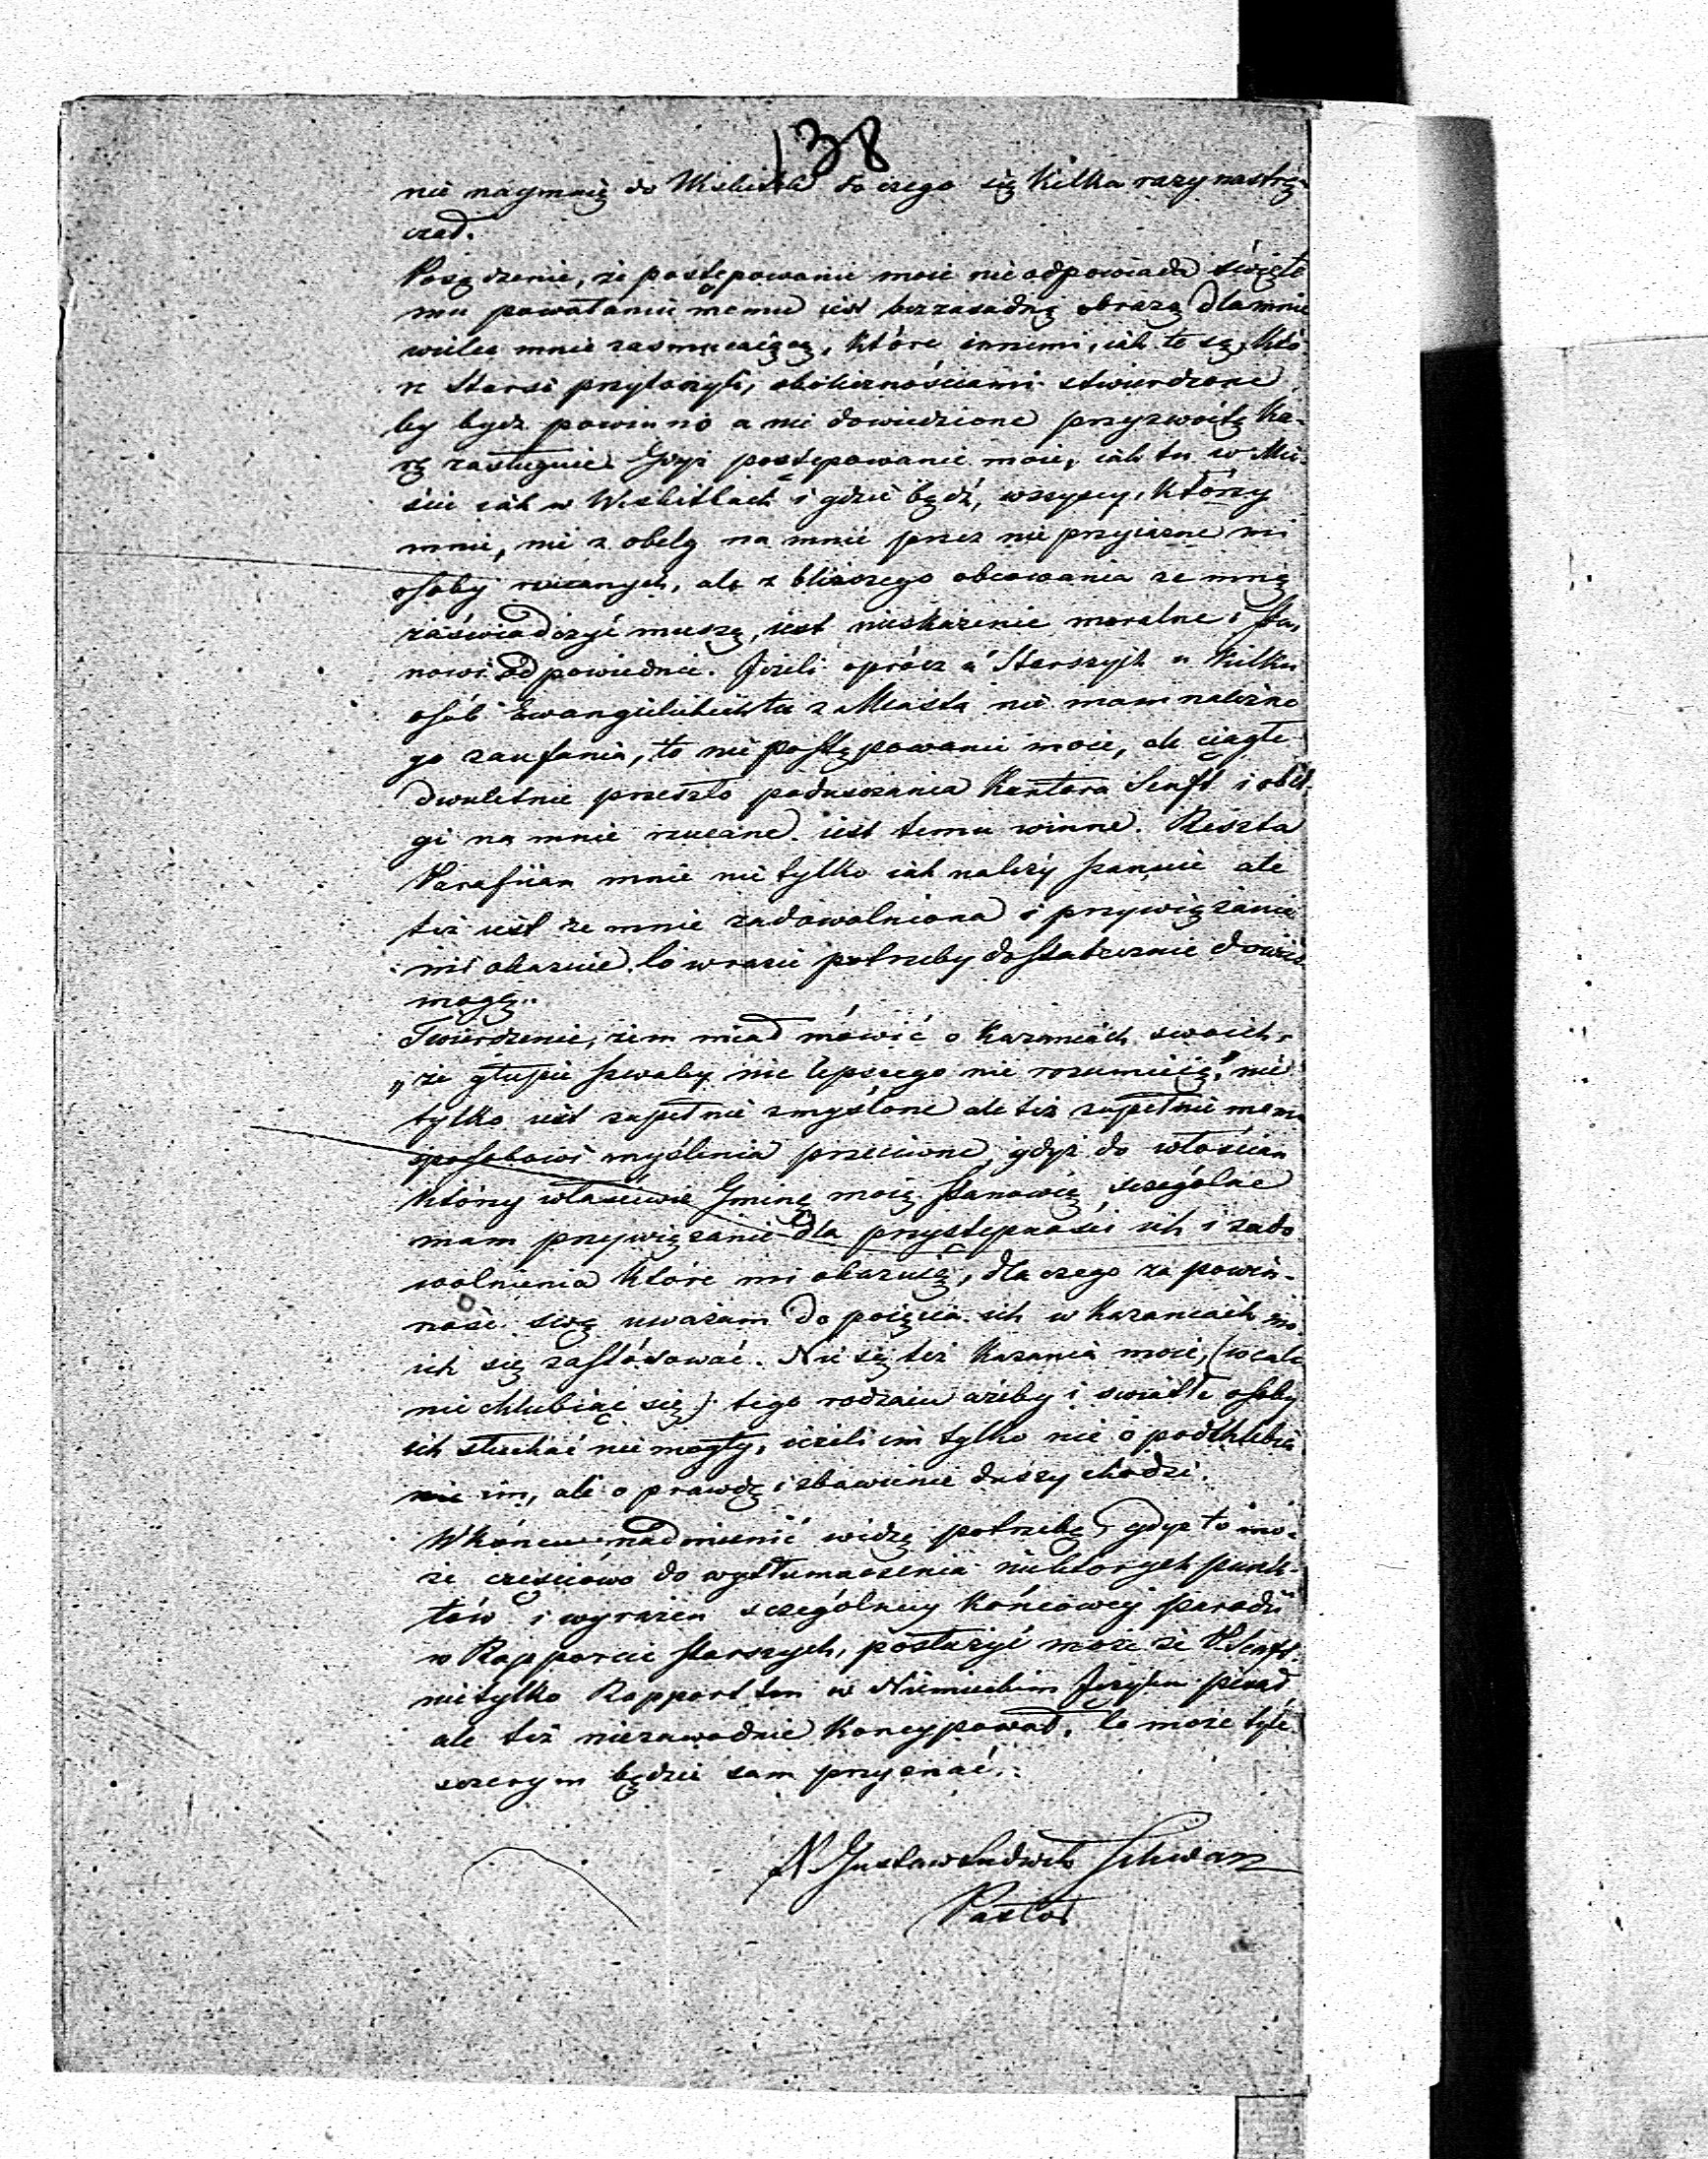 138
nie naymnię do Wiskitek do czego się kilka razy nastrę-
czał.
Posądzenie, że postępowanie moie nie odpowiada święte
mu powołaniu memu iest bezzasadną obrazą dla mnie
wielce mnie zasmucaiącą, które innemi, iak te są, któ-
re Starsi przytoczyli, okolicznościami stwierdzone
by bydz powinno a nie dowiedzione przyzwoitą ka-
rę zasługuie. Gdyż postępowanie moie, iak tu w Mie-
ście iak w Wiskitkach i gdzie bądź, wszyscy, którzy
mnie, nie z obelg na mnie przez nie przyiazne mi
osoby rzucanych, ale z bliższego obcowania ze mną
zaświadczyć muszą, iest nieskazenie moralne i sta-
nowi odpowiednie. Jeżeli oprócz u Starszych u kilku
osób Ewangielickich tu z Miasta nie mam należne
go zaufania, to nie postępowanie moie, ale ciągłe
dwuletnie przeszło poduszczania Kantora Senft i obel-
gi na mnie rzucane iest temu winne. Reszta
Parafiian mnie nie tylko iak należy szanuie ale
też iest ze mnie zadowolniona i przywiązanie
mi okazuie. Co w razie potrzeby dostatecznie dowieść
mogę.
Twierdzenie, żem miał mówić o Kazaniach swoich,
„że głupie szwaby nic lepszego nie rozumieią," nie
tylko iest zupełnie zmyślone ale też zupełnie memu
sposobowi myślenia przeciwne, gdyż do włościan
którzy właściwie Gminę moię stanowią szczególne
mam przywiązanie dla przystępności ich i zado
wolnienia które mi okazuią, dla czego za powin-
ność swą uważam do poięcia ich w Kazaniach mo-
ich się zastósować. Nie są też Kazania moie, (wcale
nie chlubiąc się) tego rodzaiu ażeby i światłe osoby
ich słuchać nie mogły, ieżeli im tylko nie o podchlebia
nie im, ale o prawdę i zbawienie duszy chodzi.
W końcu nadmienić widzę potrzebę, gdyż to mo-
że częściowo do wytłumaczenia niektorych punk-
tów i wyrażen szczególney końcowey parodii
w Rapporcie starszych, posłużyć może że P. Senft.
nie tylko Rapport ten w Niemieckim Języku pisał,
ale też niezawodnie koncypował, Co może tyle
szczerym będzie sam przyznać.
N Gustaw Ludwik Schwarz
Pastor